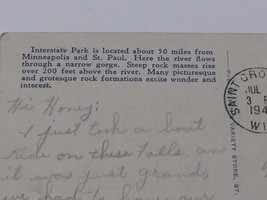 Interstate Park is located about 50 miles from
Minneapolis and St. Paul. Here the river flows
through a narrow gorge. Steep rock masses rise
over 200 feet above the river. Many picturesque
and grotesque rock formations excite wonder and
interest.
SAINT CRO
JUL
3 P
194
WI
VARIETY STORE, ST.
Hi Honey:
I just took a boat
ride on these Falls, an
it was just grand,
we had to